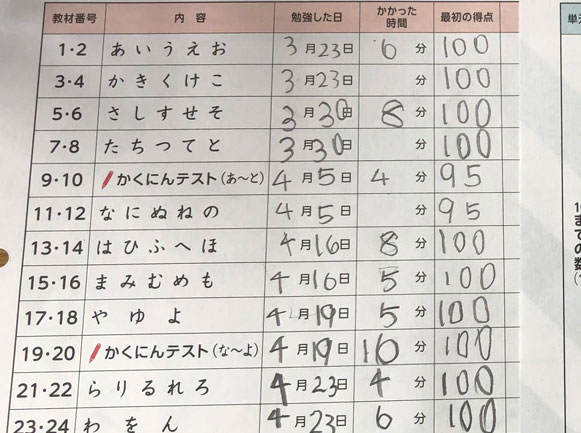 教材番号 内容 勉強した日 かかった時間 最初の得点
1・2 あいうえお 3月23日 6分 100
3・4 かきくけこ 3月23日 分 100
5・6 さしすせそ 3月30日 8分 100
7・8 たちつてと 3月30日 分 100
9・10 かくにんテスト(あ〜と) 4月5日 4分 95
11・12 なにぬねの 4月5日 分 95
13・14 はひふへほ 4月16日 8分 100
15・16 まみむめも 4月16日 5分 100
17・18 やゆよ 4月19日 5分 100
19・20 かくにんテスト(な〜よ) 4月19日 10分 100
21・22 らりるれろ 4月23日 4分 100
23・24 わをん 4月23日 6分 100